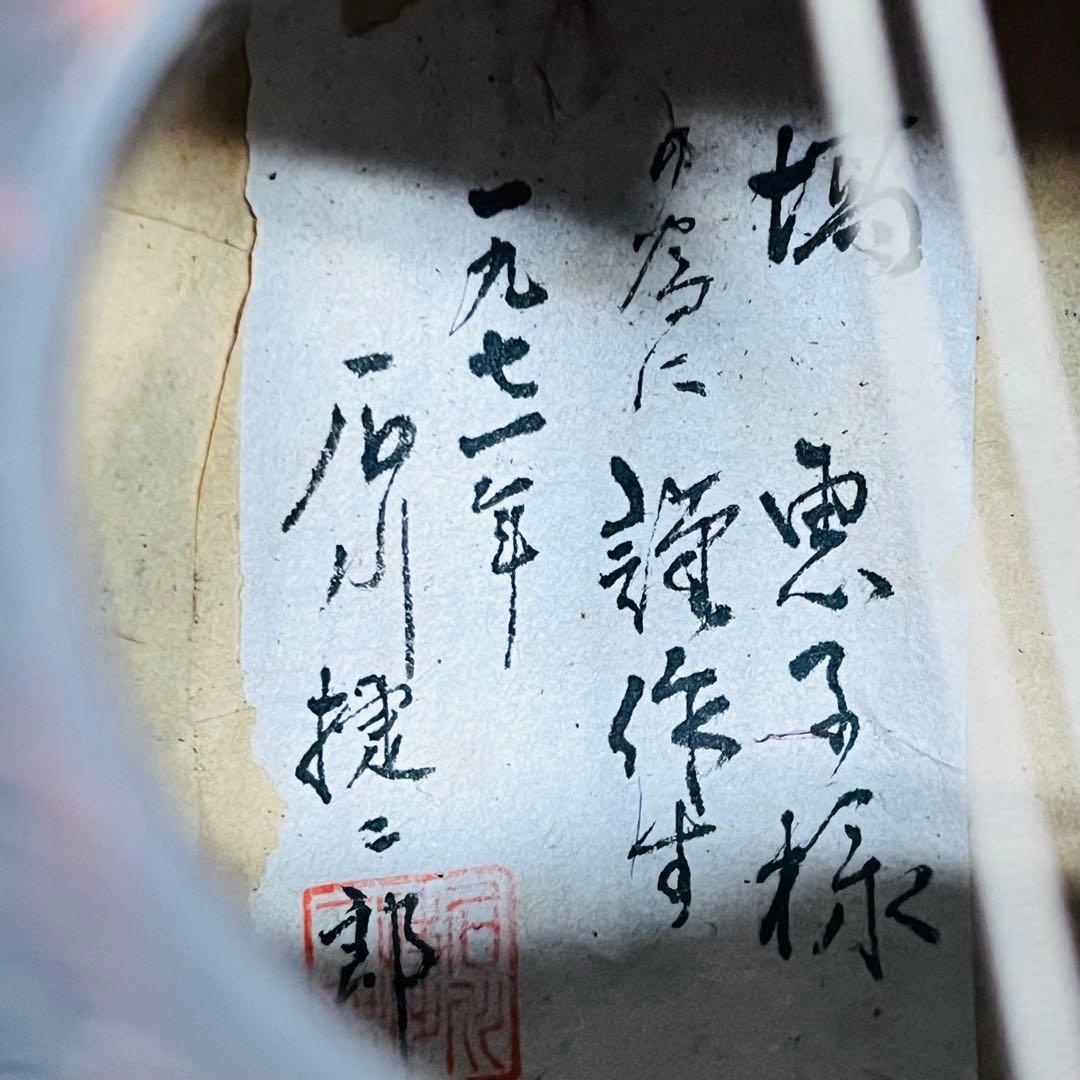 場 恵子様
の為に 謹作す
一九七一年
石川 捷二郎